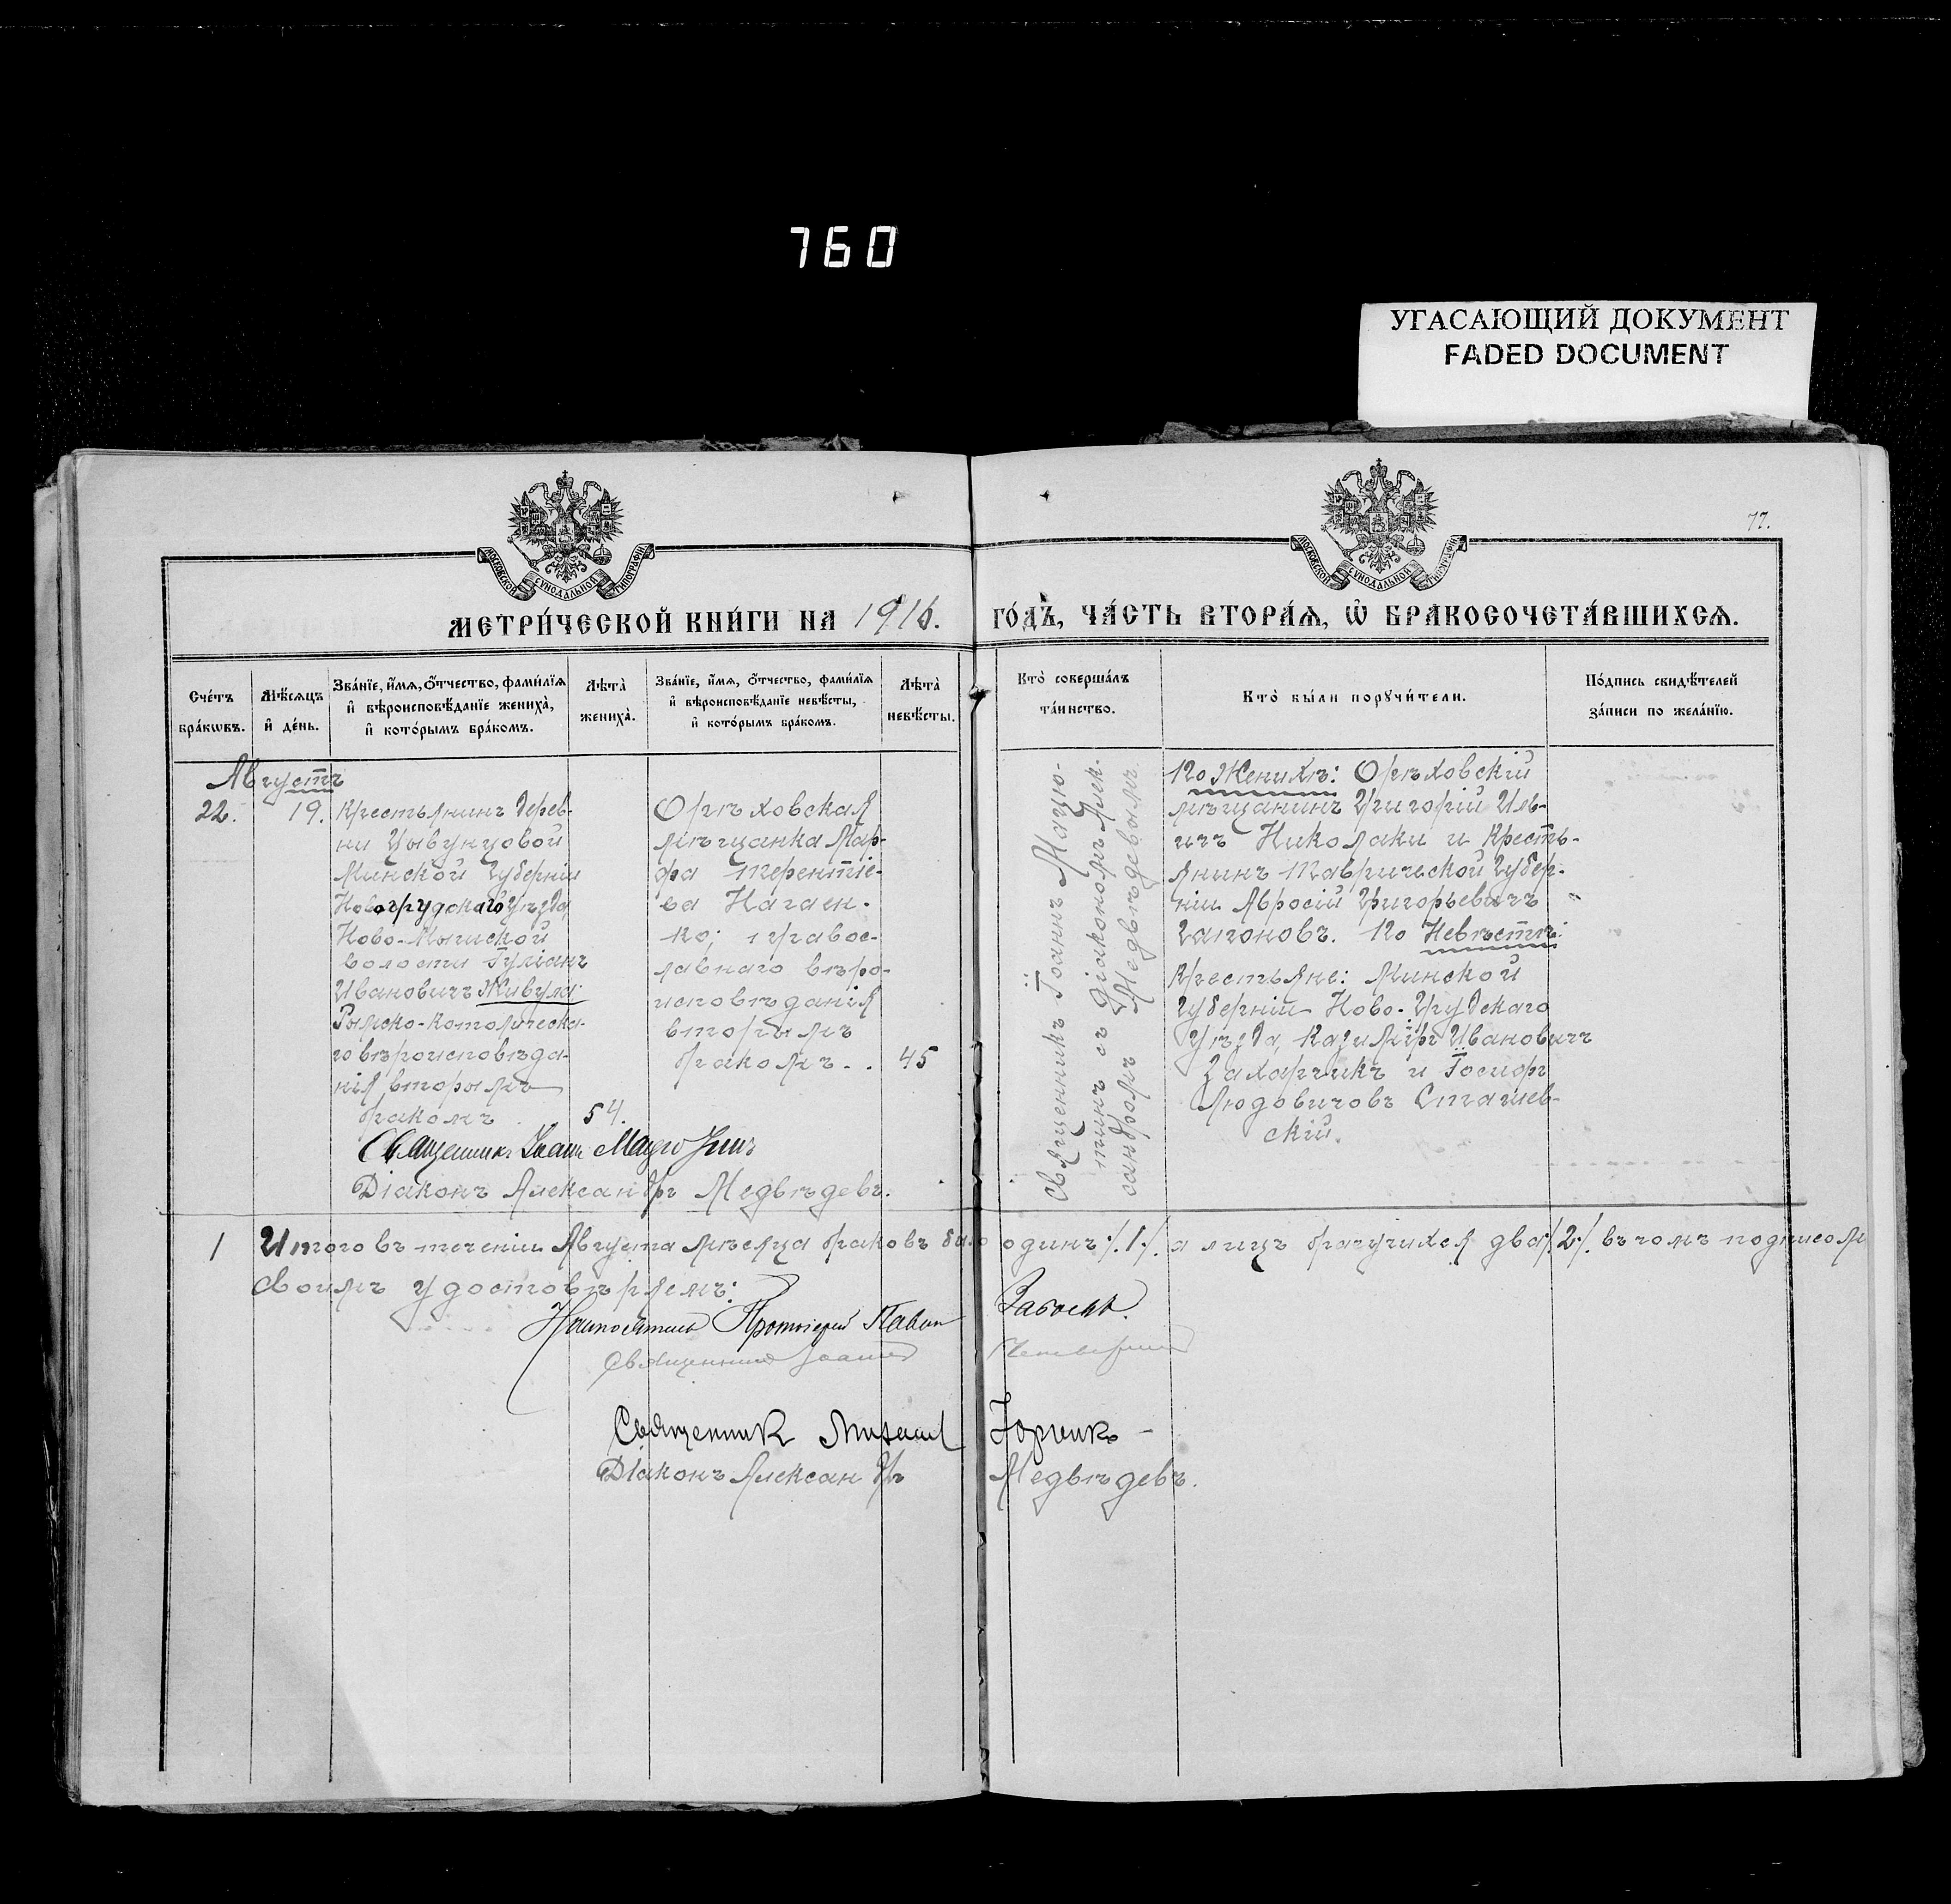 760
УГАСАЮЩИЙ ДОКУМЕНТ
FADED DOCUMENT
77.
МОСКОВСКОЙ СѴНОДАЛЬНОЙ ТИПОГРАФІИ
МОСКОВСКОЙ СѴНОДАЛЬНОЙ ТИПОГРАФІИ
МЕТРИ́ЧЕСКОЙ КНИ́ГИ НА 1916. ГО́ДЪ, ЧА́СТЬ ВТОРА́Я, Ѿ БРАКОСОЧЕТА́ВШИХСЯ.
Сче́тъ
бра́кѡвъ.
Мѣ́сяцъ
и҆ де́нь.
Зва́нїе, и҆́мя, ѻ҆́тчество, фами́лїя
и҆ вѣроисповѣ́данїе жениха̀,
и҆ кото́рымъ бра́комъ.
Лѣта̀
жениха̀.
Зва́нїе, и҆́мя, ѻ҆́тчество, фами́лїя
и҆ вѣроисповѣ́данїе невѣ́сты,
и҆ кото́рымъ бра́комъ.
Лѣта̀
невѣ́сты.
Кто̀ соверша́лъ
та́инство.
Кто̀ бы́ли порꙋчи́тели.
По́дпись свидѣ́телей
за́писи по жела́нїю.
Августъ
22.
19.
Крестьянинъ дерев-
ни Цывунцовой
Минской Губерніи
Новогрудскаго уѣзда
Ново-Мышской
волости Іуліанъ
Ивановичъ Живула:
Римско-католическа-
го вѣроисповѣда-
нія, вторымъ
бракомъ.
54.
Орѣховская
мѣщанка Мар-
фа Терентіе-
ва Нагаен-
ко; правос-
лавнаго вѣро-
исповѣданія
вторымъ
бракомъ..
45
Священникъ Іоаннъ Мацю-
тинъ съ Діакономъ Алек-
сандромъ Медвѣдевымъ.
По Женихѣ: Орѣховскій
мѣщанинъ Григорій Иль-
ичъ Николаки и Кресть-
янинъ Таврической Губер-
ніи Авросій Григорьевичъ
Гапоновъ. По Невѣстѣ:
Крестьяне: Минской
Губерніи Ново-Грудскаго
Уѣзда, Казиміръ Ивановичъ
Захарчикъ и Іосифъ
Людовичовъ Сташев-
скій.
Священникъ Іоаннъ Мацютинъ
Діаконъ Александръ Медвѣдевъ.
1 Итого въ теченіи Августа мѣсяца браковъ было одинъ /.1./. а лицъ брачихся два /.2./. въ чомъ подписом
Своимъ удостовѣряемъ:
Настоятель Протоіерей Павелъ
Священникъ Іоаннъ
Священникъ Михаилъ
Діаконъ Александръ Медвѣдевъ.